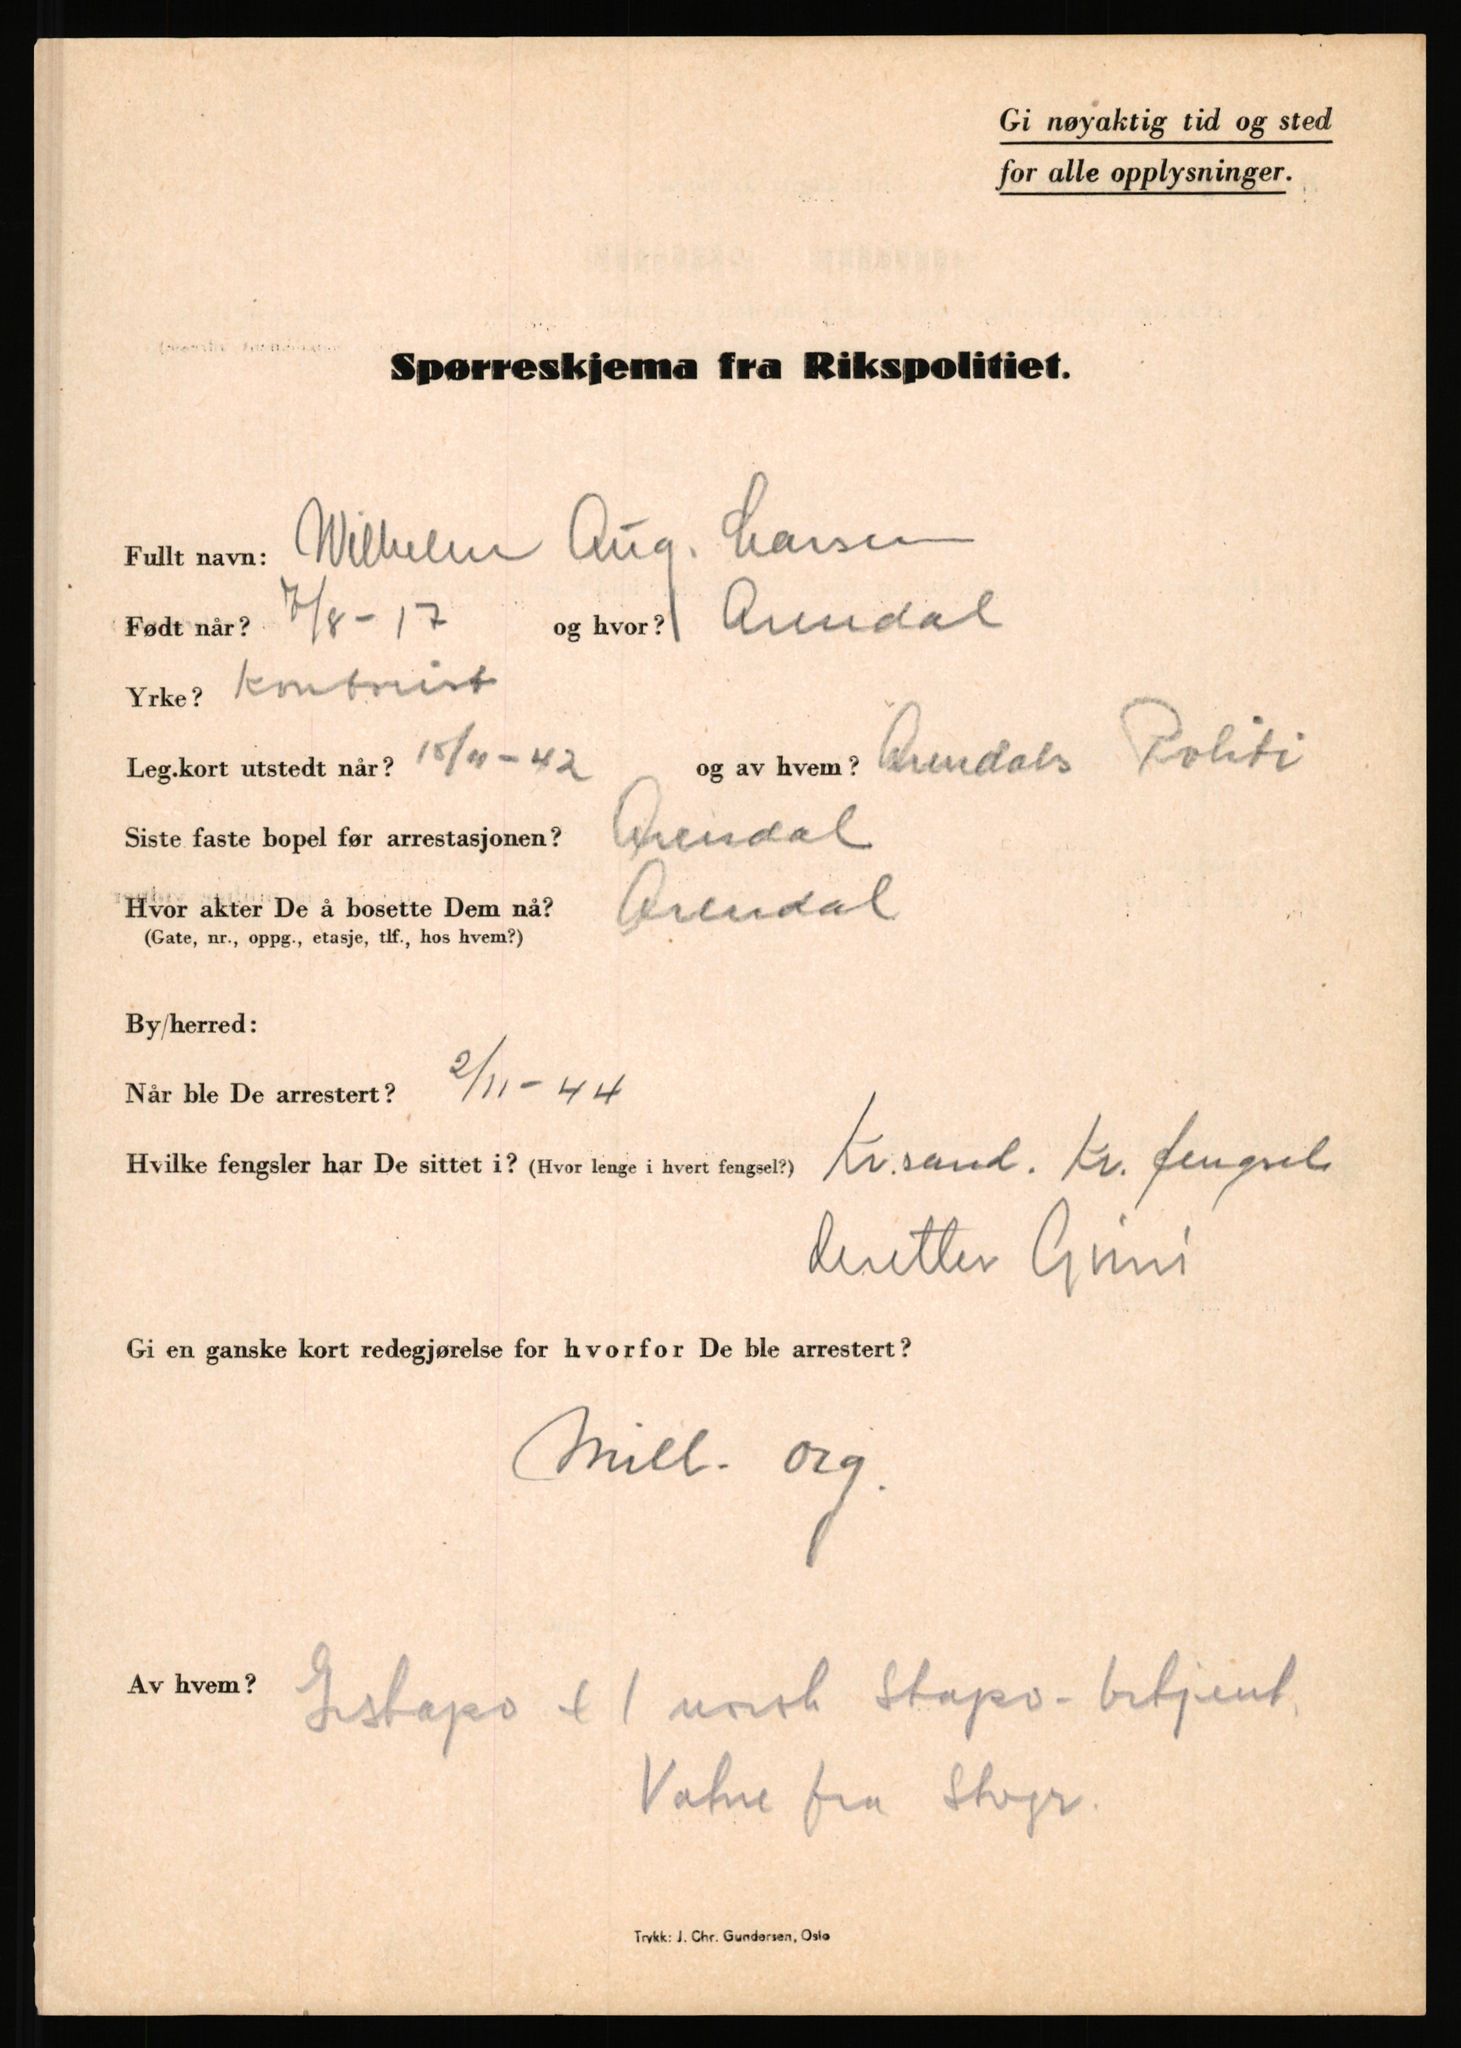 Gi nøyaktig tid og sted
for alle opplysninger.
Spørreskjema fra Rikspolitiet.
Fullt navn: Wilhelm Aug. Larsen
Født når? 7/8-17 og hvor? Arendal
Yrke? Kontorist
Leg.kort utstedt når? 15/11-42 og av hvem? Arendals Politi
Siste faste bopel før arrestasjonen? Arendal
Hvor akter De å bosette Dem nå? Arendal
(Gate, nr., oppg., etasje, tlf., hos hvem?)
By/herred:
Når ble De arrestert? 2/11-44
Hvilke fengsler har De sittet i? (Hvor lenge i hvert fengsel?) Kr.sand. Kr. fengsel
deretter Grini
Gi en ganske kort redegjørelse for hvorfor De ble arrestert?
Mill. org.
Av hvem? Gestapo + 1 norsk Stapo-betjent,
Vatne fra Stvgr.
Trykk: J. Chr. Gundersen, Oslo